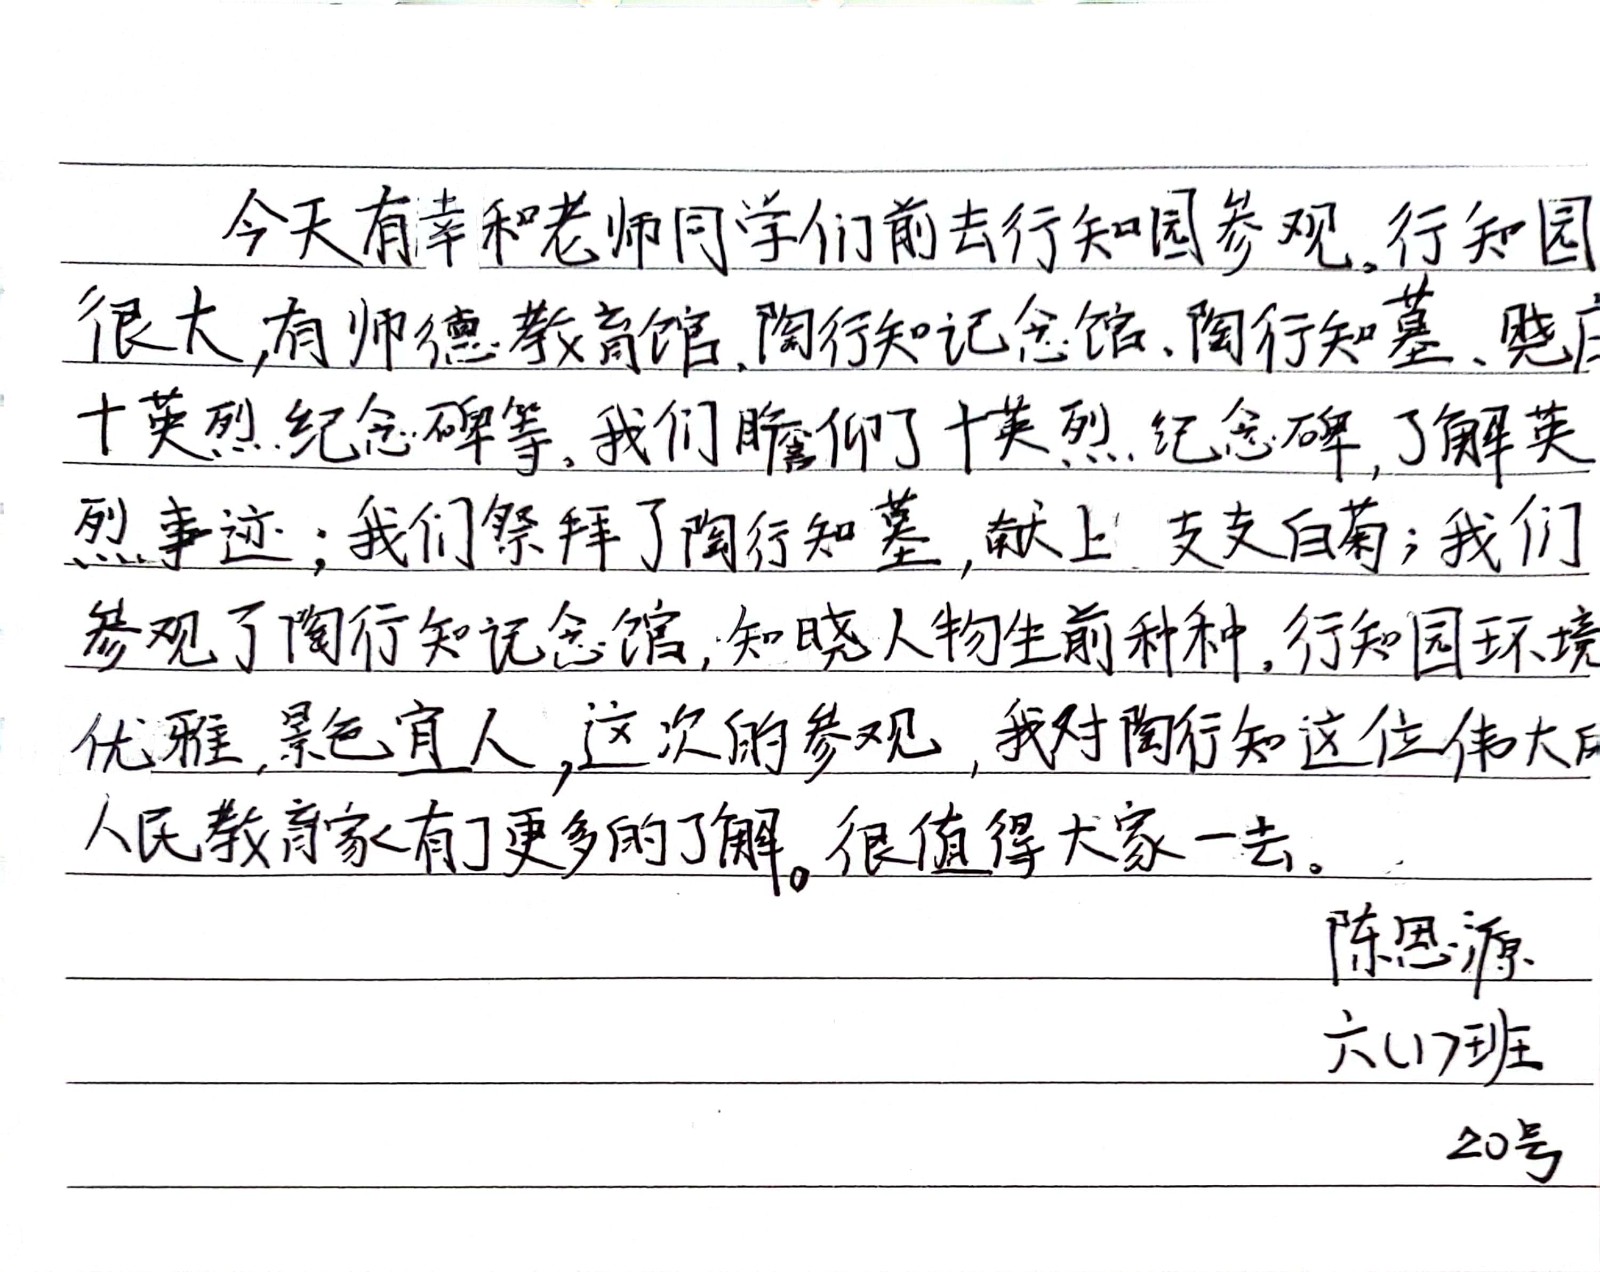 今天有幸和老师同学们前去行知园参观。行知园
很大,有师德教育馆、陶行知记念馆、陶行知墓、晓庄
十英烈纪念碑等。我们瞻仰了十英烈纪念碑,了解英
烈事迹;我们祭拜了陶行知墓,献上 支支白菊;我们
参观了陶行知记念馆,知晓人物生前种种。行知园环境
优雅,景色宜人,这次的参观,我对陶行知这位伟大的
人民教育家有了更多的了解。很值得大家一去。
陈恩源
六(1)班
20号